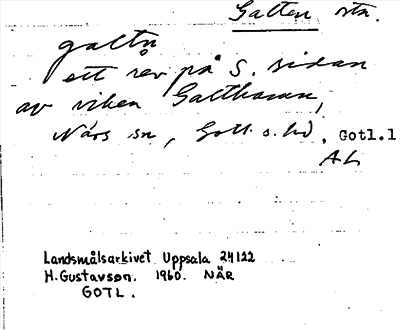 Galten stn.
galtn̥
ett rev på S. sidan
av viken Galthamn,
Närs sn, Gotl. s. hd, Gotl.l
AL
Landsmålsarkivet Uppsala 24122
H. Gustavson. 1960. NÄR
GOTL.